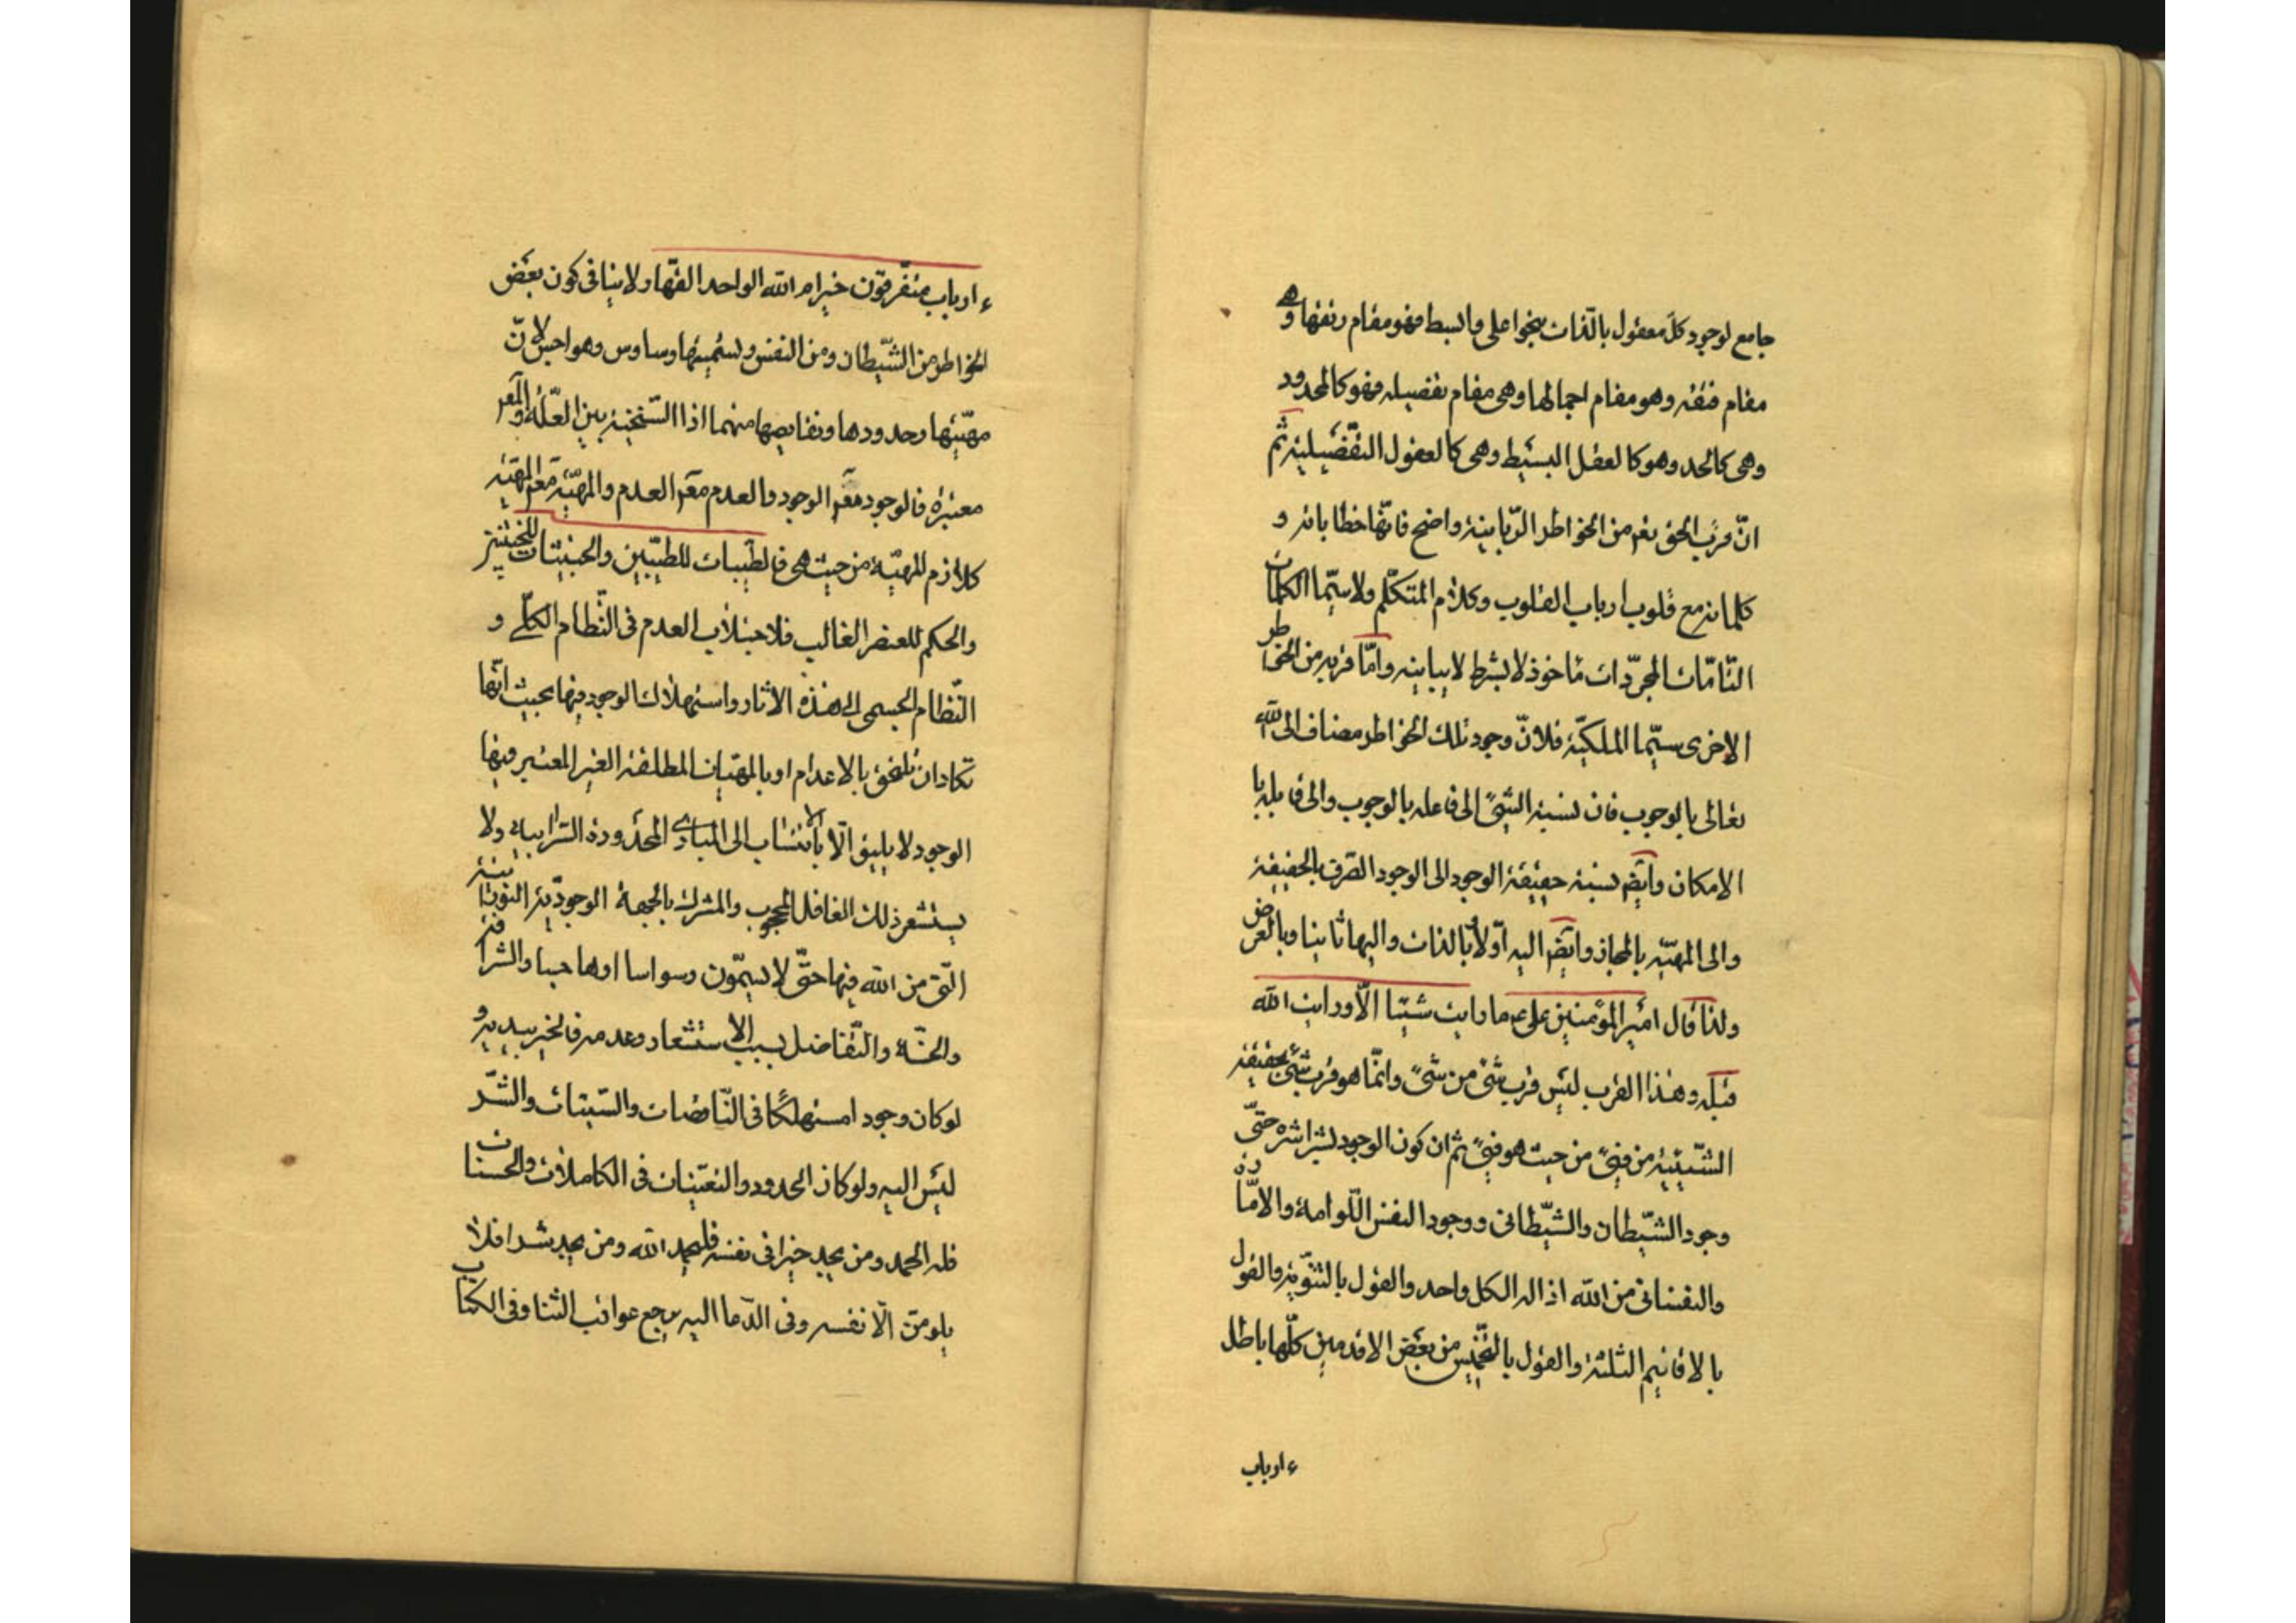 جامع لوجود كلّ معقول بالذّات بنحو اعلى وابسط فهو مقام رتقها وهى
مقام فتقه وهو مقام اجمالها وهى مقام تفصيله فهو كالمحدود
وهى كالحد وهو كالعقل البسيط وهى كالعقول التّفصيلية ثمّ
انّ قرب الحق تعم من الخواطر الرّبانية واضح فانّها خطاباته و
كلماته مع قلوب ارباب القلوب وكلام المتكلّم ولاسيّما الكلمات
التّامّات المجرّدات ماخوذ لابشرط لايباينه وامّا قربه من الخواطر
الاخرى سيّما الملكيّة فلانّ وجود تلك الخواطر مضاف الى الله
تعالى بالوجوب فان نسبة الشّئ الى فاعله بالوجوب والى قابله با
الامكان وايضم نسبة حقيقة الوجود الى الوجود الصّرف بالحقيقة
والى المهيّه بالمجاز وايضم اليه اوّلا وبالذات واليها ثانيا وبالعرض
ولذا قال امير المؤمنين على ع ما رايت شيئا الّا ورايت الله
قبله وهذا القرب ليس قرب شئ من شئ وانّما هو قرب شئ بحقيقة
الشّيئية من فئ من حيث هو فئ ثم ان كون الوجود بشراشره حتّى
وجود الشّيطان والشّيطانى ووجود النفس اللّوامة والامّارة
والنفسانى من الله اذ اله الكل واحد والقول بالثنويّة والقول
بالاقانيم الثلثة والقول بالتخميس من بعض الاقدمين كلّها باطل
ءارباب
ءارباب متفرّقون خير ام الله الواحد القهّار ولا ينافى كون بعض
الخواطر من الشّيطان ومن النفس وتسميتها وساوس وهواجس لانّ
مهيّتها وحدودها ونقايصها منهما اذ السّنخية بين العلّة والمعم
معتبرة فالوجود معم الوجود والعدم معم العدم والمهيّة معم المهيّة
كلازم للمهيّة من حيث هى فالطيّبات للطيّبين والخبيثات للخبيثين
والحكم للعنصر الغالب فلا جيئلاب العدم فى النّظام الكلّى و
النّظام الجسمى الى هذه الاثار واستهلاك الوجود فيها بحيث انّها
تكاد ان تلحق بالاعدام او بالمهيّات المطلقة الغير المعتبر فيها
الوجود لا يليق الّا بالانتساب الى المبادى المحدودة السّرابية ولا
يستشعر ذلك الغافل المحجوب والمشرك بالجهة الوجوديّة النّورانية
الّتى من الله فيها حتّى لا يسمّون وسواسا او هاجسا والشرافة
والخسّة والتّفاضل بسبب الاستشعار وعدمه فالخير بيديه و
لو كان وجودا مستهلكًا فى النّاقصات والسّيئات والشّر
ليس اليه ولو كان الحدود والتعيّنات فى الكاملات والحسنات
فله الحمد ومن يجد خيرا فى نفسه فليحمد الله ومن يجد شرا فلا
يلومنّ الّا نفسه وفى الدّعا اليه يرجع عواقب الثنا وفى الكتاب